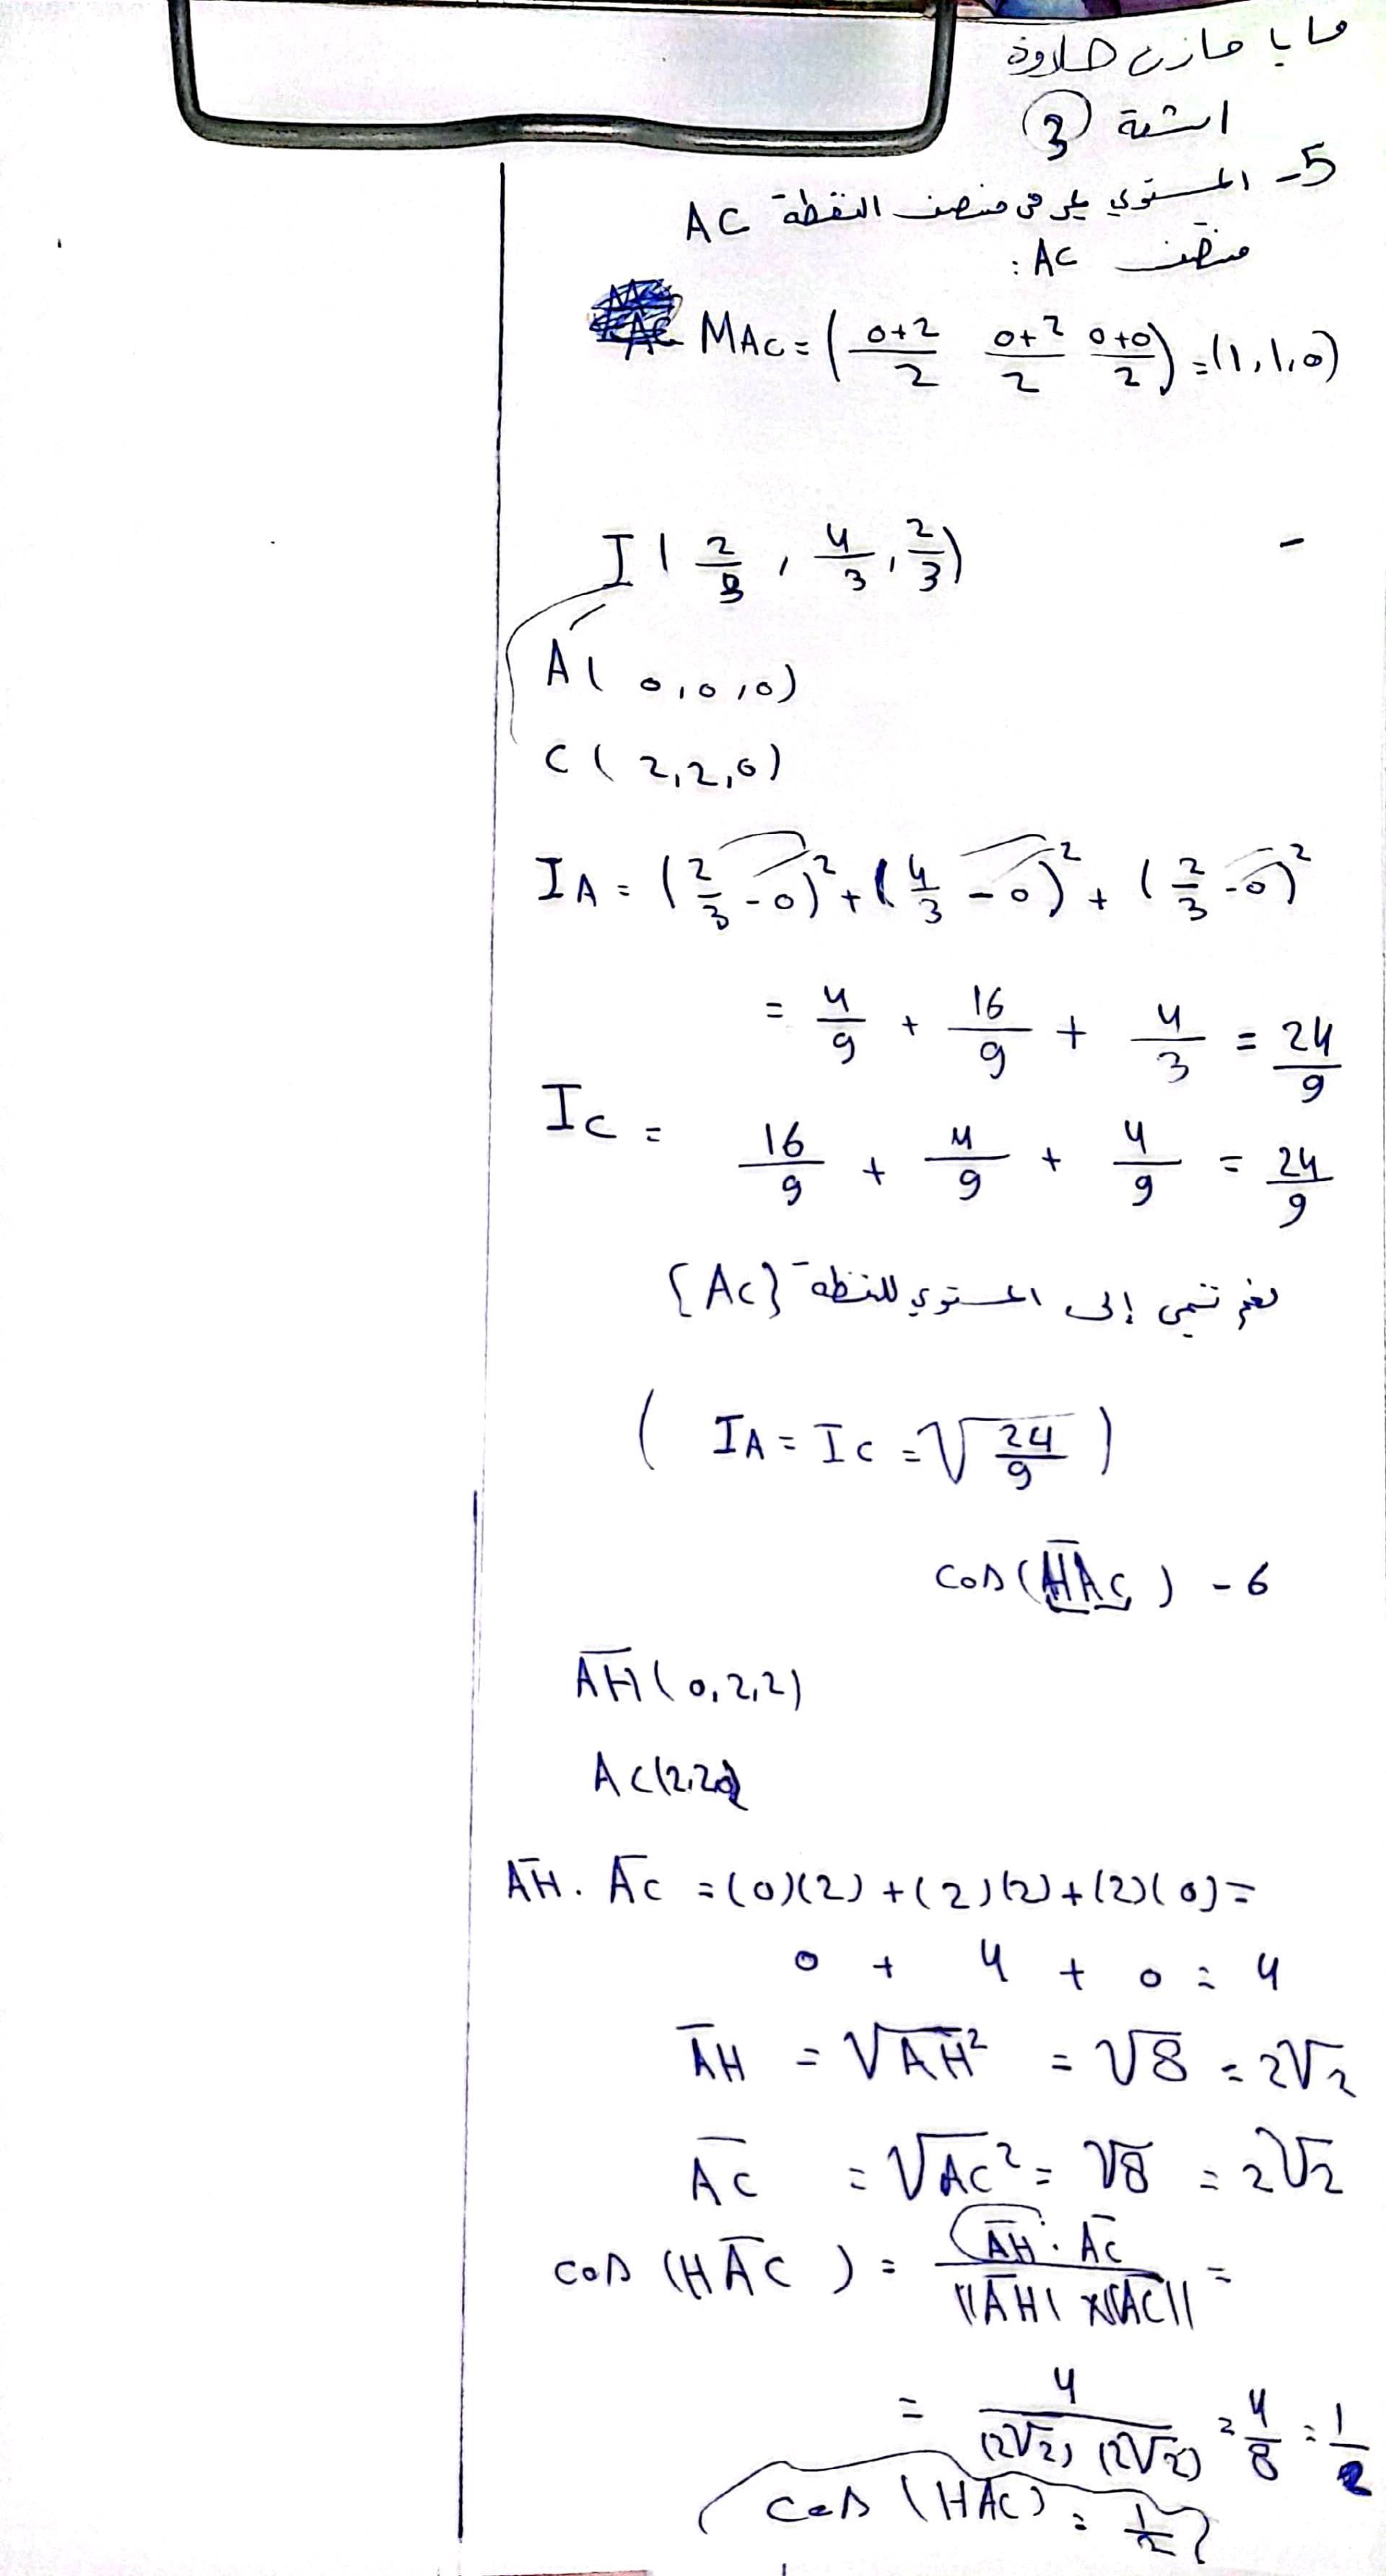 مايا مازن حلاوة
اشعة 3
5- المستوي يلي في منصف النقطة AC
منصف AC :
MAC = ( 0+2/2 0+2/2 0+0/2 ) = (1,1,0)
I ( 2/3 , 4/3 , 2/3 ) -
A ( 0,0,0 )
C ( 2,2,0 )
IA = ( 2/3 - 0 )² + ( 4/3 - 0 )² + ( 2/3 - 0 )²
= 4/9 + 16/9 + 4/3 = 24/9
IC = 16/9 + 4/9 + 4/9 = 24/9
نعم تنتمي إلى المستوي للنقطة {AC}
( IA = IC = √24/9 )
6 - cos (HAC)
AH ( 0,2,2 )
AC (2,2,0)
AH . AC = (0)(2) + (2)(2) + (2)(0) =
0 + 4 + 0 = 4
AH = √AH² = √8 = 2√2
AC = √AC² = √8 = 2√2
cos (HAC) = AH . AC / ||AH| x||AC|| =
= 4 / (2√2) (2√2) = 4/8 = 1/2
cos (HAC) = 1/2